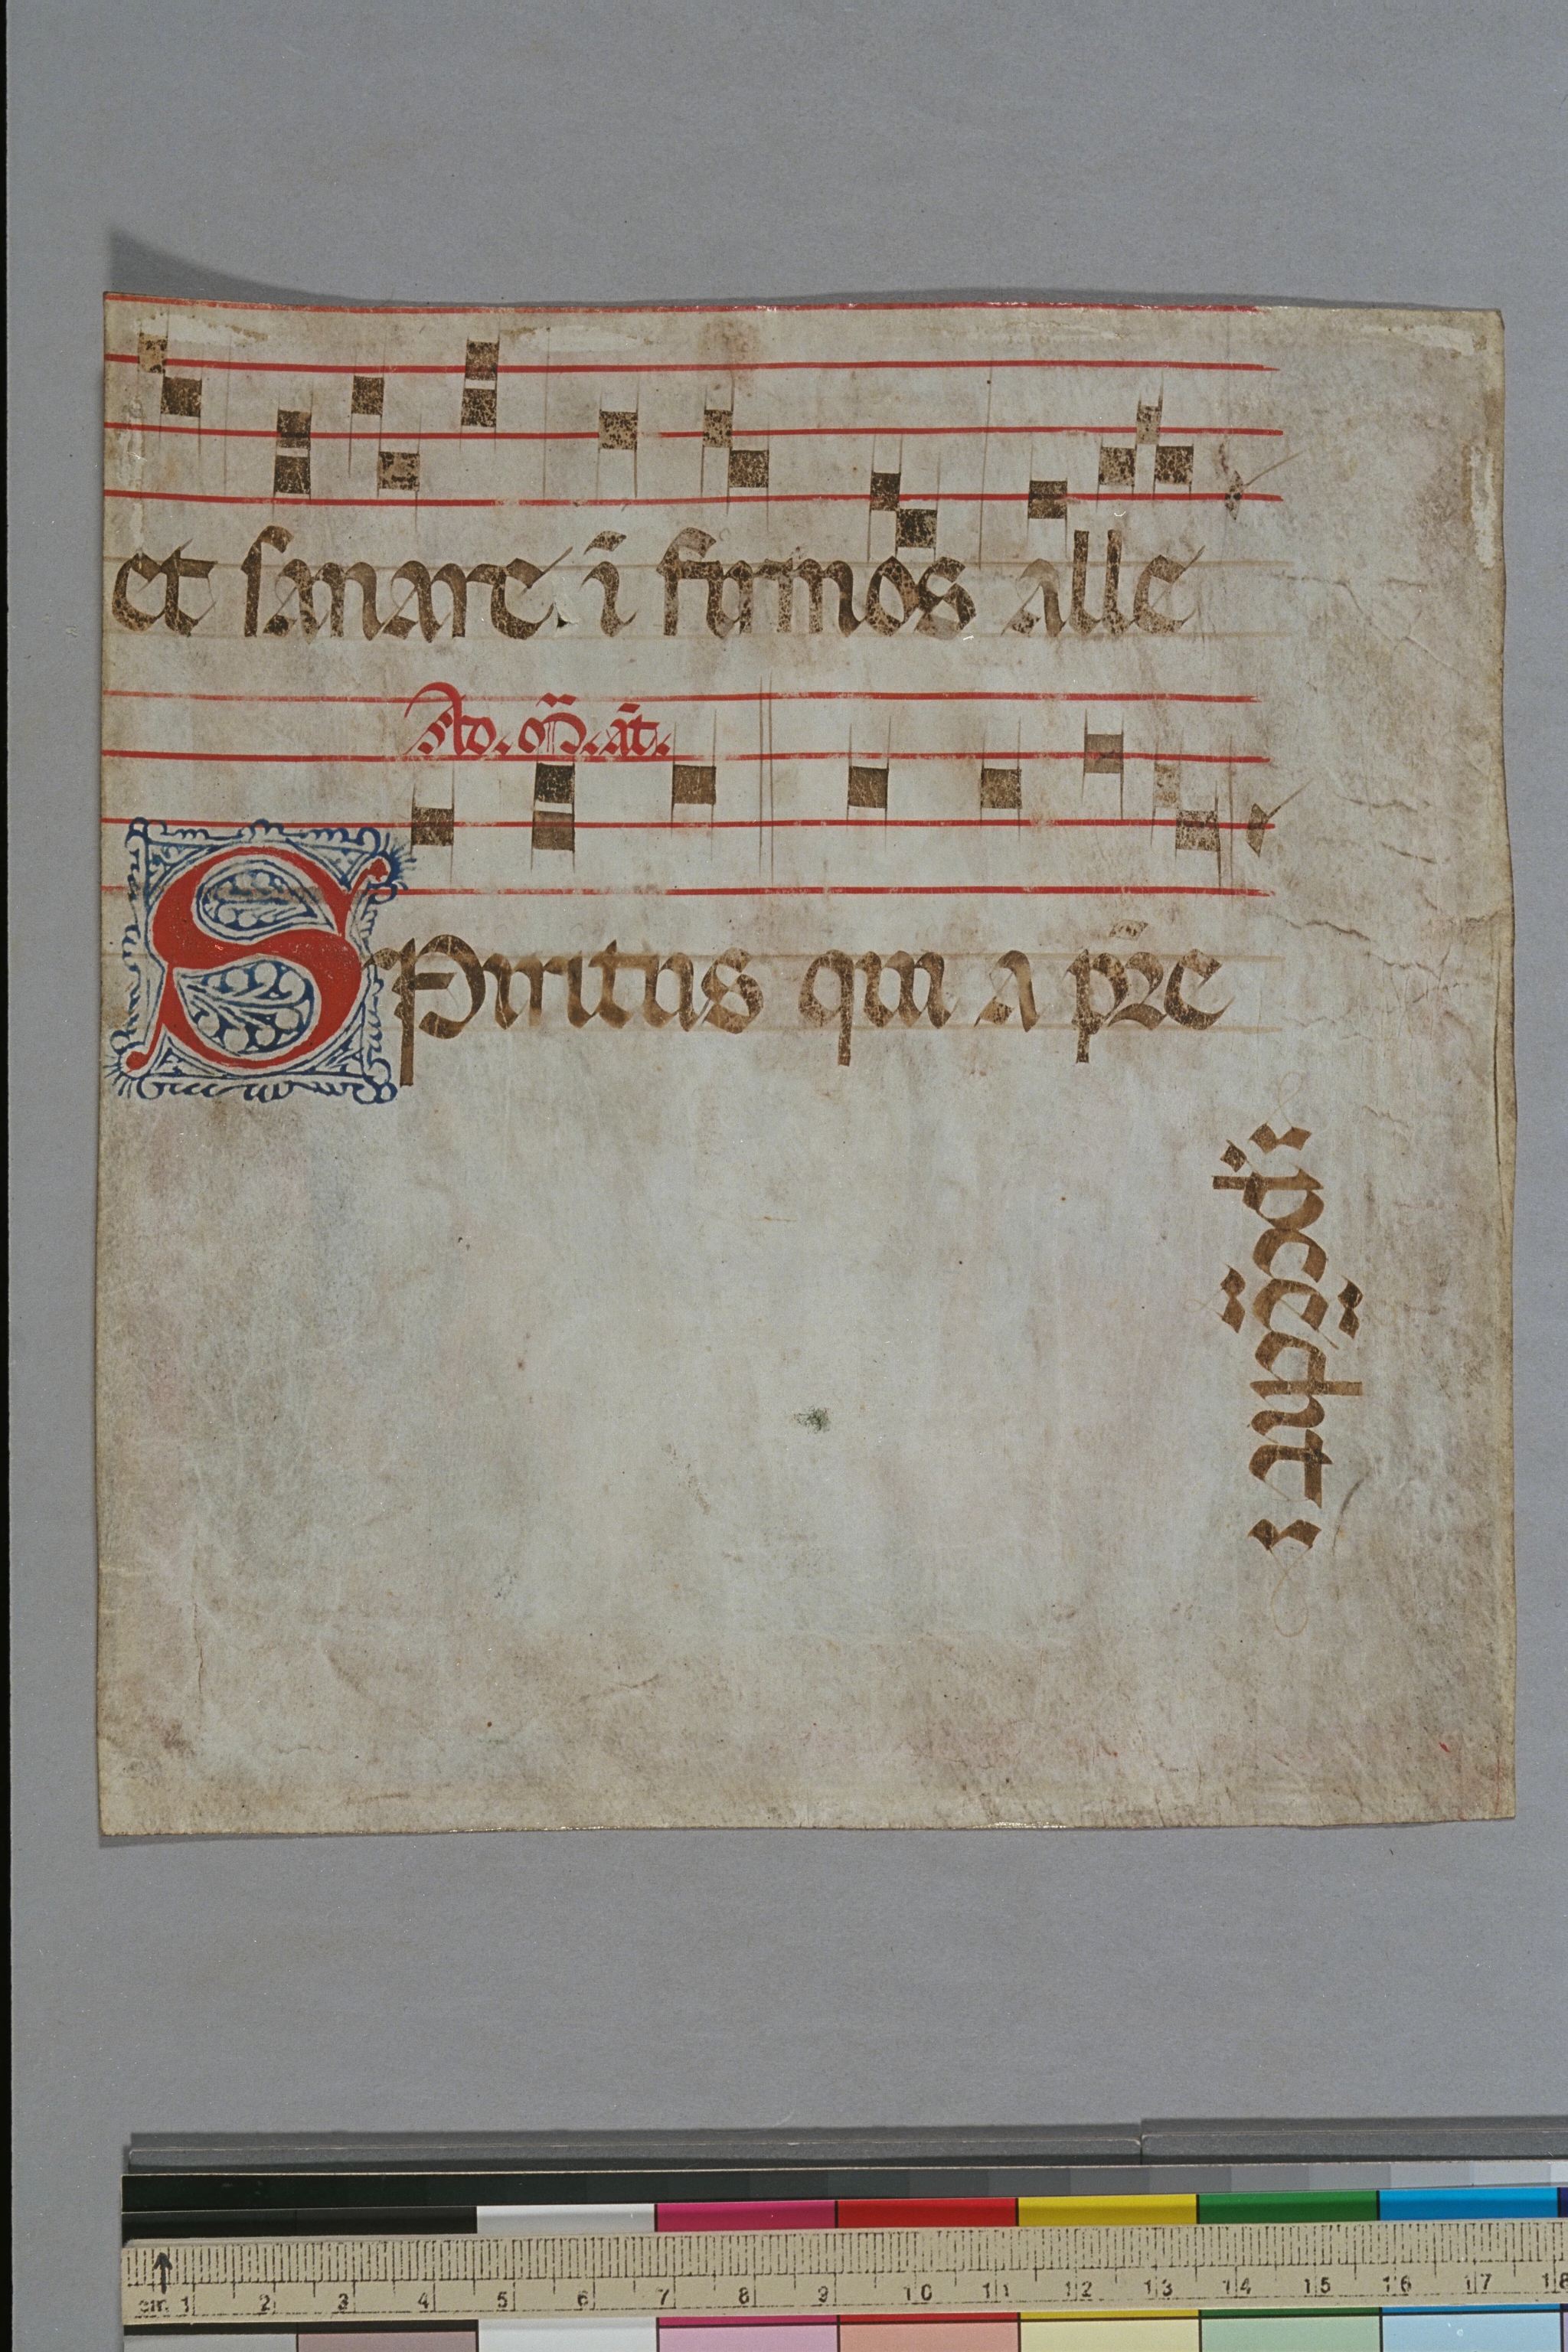 et sanare. ī firmos alle
Ad. oꝝ. ãt.
SPiritus qui a p̃re
cm 1 2 3 4 5 6 7 8 9 10 11 12 13 14 15 16 17 18